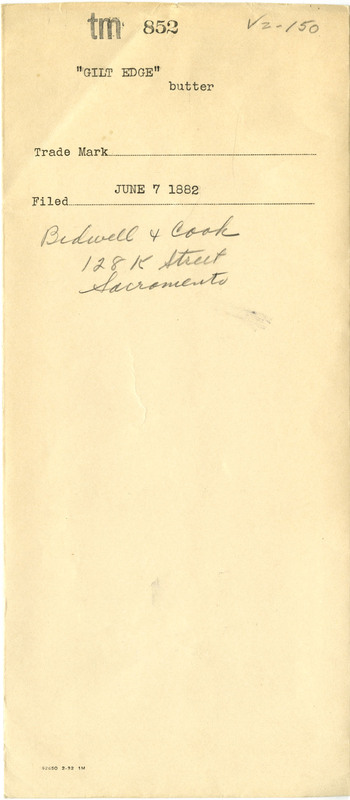 tm 852 V2-150
"GILT EDGE"
butter
Trade Mark
JUNE 7 1882
Filed
Bidwell & Cook
128 K Street
Sacramento
2-32 1M